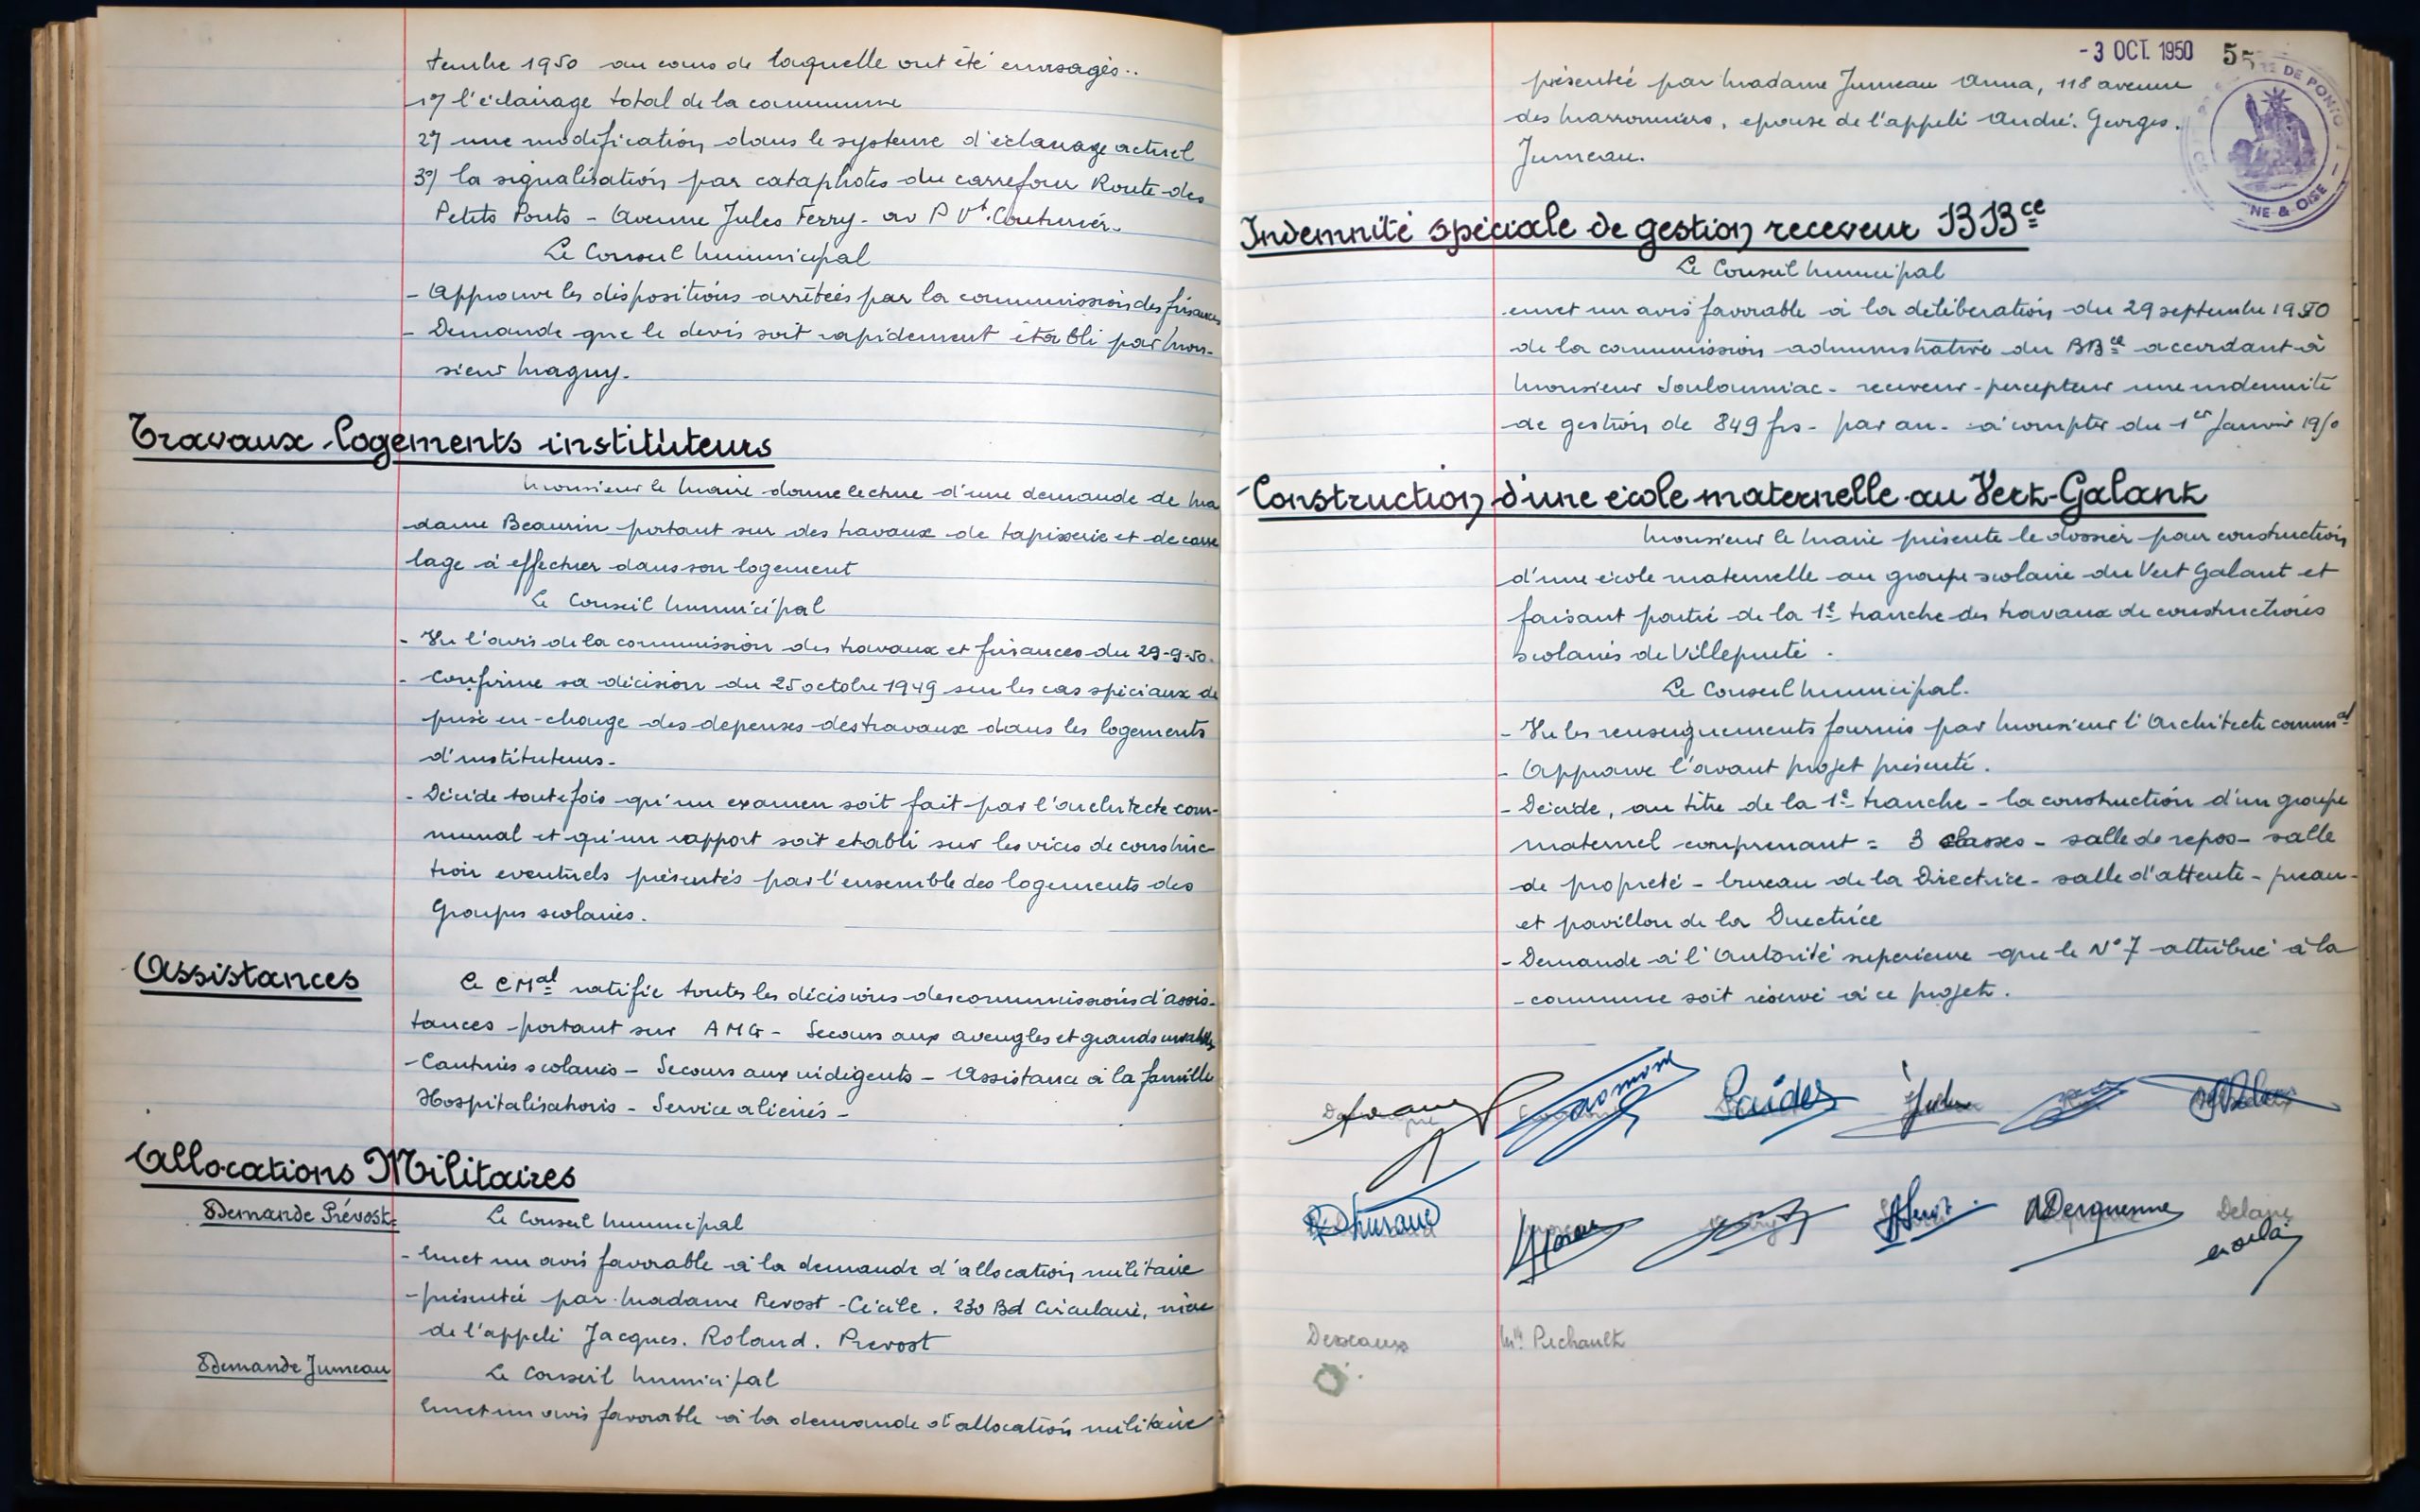 tembre 1950 au cours de laquelle ont été envisagés..
1°/ l'éclairage total de la commune
2°/ une modification dans le systeme d'éclairage actuel
3°/ la signalisation par cataphotes du carrefour Route des
Petits Ponts - Avenue Jules Ferry - av P Vt. Couturier.
Le Conseil Municipal
- Approuve les dispositions arrêtées par la commission des finances
- Demande que le devis soit rapidement établi par Mon-
sieur Maguy.
Travaux logements instituteurs
Monsieur le Maire donne lecture d'une demande de Ma
dame Beaurin portant sur des travaux de tapisserie et de carre
lage à effectuer dans son logement
Le Conseil Municipal
- Vu l'avis de la commission des travaux et finances du 29-9-50.
- Confirme sa décision du 25 octobre 1949 sur les cas spéciaux de
prise en charge des depenses des travaux dans les logements
d'instituteurs.
- Décide toutefois qu'un examen soit fait par l'architecte com-
munal et qu'un rapport soit etabli sur les vices de construc-
tion eventuels présentés par l'ensemble des logements des
Groupes scolaires.
Assistances
Le CMal ratifie toutes les décisions des commissions d'assis-
tances portant sur AMG - Secours aux aveugles et grands
- Cantines scolaires - Secours aux indigents - Assistance à la famille
Hospitalisations - Service aliénés -
Allocations Militaires
Demande Prévost:
Le Conseil Municipal
- Emet un avis favorable à la demande d'allocation militaire
- présentée par Madame Prevost Cécile. 230 Bd Circulaire, mère
de l'appelé Jacques. Roland. Prevost
Demande Jumeau
Le Conseil Municipal
Emet un avis favorable à la demande d'allocation militaire
- 3 OCT. 1950 55
DE PONTO
NE & OISE
présentée par Madame Jumeau Anna, 118 avenue
des Marronniers, epouse de l'appelé André. Georges.
Jumeau.
Indemnité spéciale de gestion receveur BBce
Le Conseil Municipal
emet un avis favorable à la déliberation du 29 septembre 1950
de la commission administrative du BBce accordant à
Monsieur Souloumiac - receveur-percepteur une indemnité
de gestion de 849 frs - par an - à compter du 1er Janvier 1950
Construction d'une école maternelle au Vert-Galant
Monsieur le Maire présente le dossier pour construction
d'une école maternelle au groupe scolaire du Vert Galant et
faisant partie de la 1e tranche des travaux de constructions
scolaires de Villepinte.
Le Conseil Municipal.
- Vu les renseignements fournis par Monsieur l'Architecte commal
- Approuve l'avant projet présenté.
- Décide, au titre de la 1e tranche - la construction d'un groupe
maternel comprenant = 3 classes - salle de repos - salle
de propreté - bureau de la Directrice - salle d'attente - preau -
et pavillon de la Directrice
- Demande à l'Autorité superieure que le N° 7 attribué à la
- commune soit réservé à ce projet.
NDerquenne
Desceaux Mr Pichault